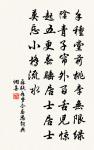 手種堂前桃李無限綠
陰青子簾外百舌兒驚
起五更春睡居士居士
莫忘小橋流水